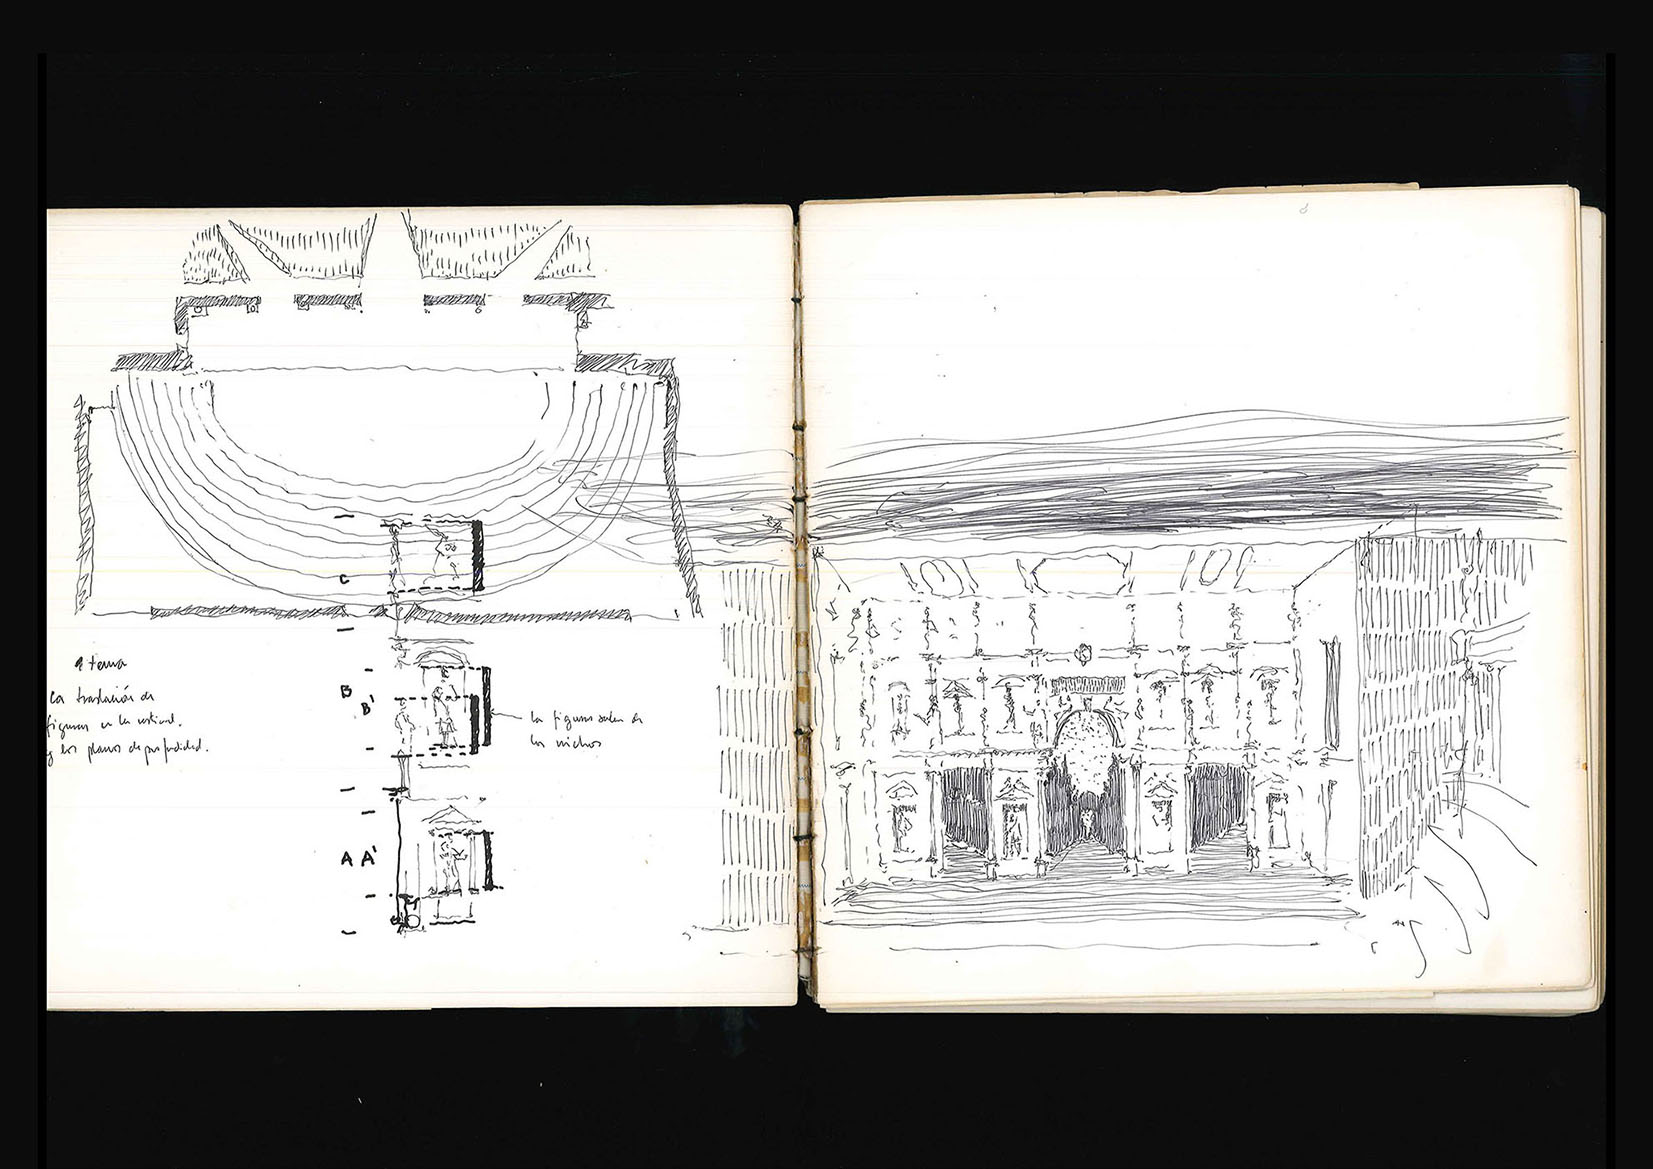 C
B
B'
A A'
tema
la traslación de
figuras en la vertical.
y los planos de profundidad.
las figuras salen de
los nichos